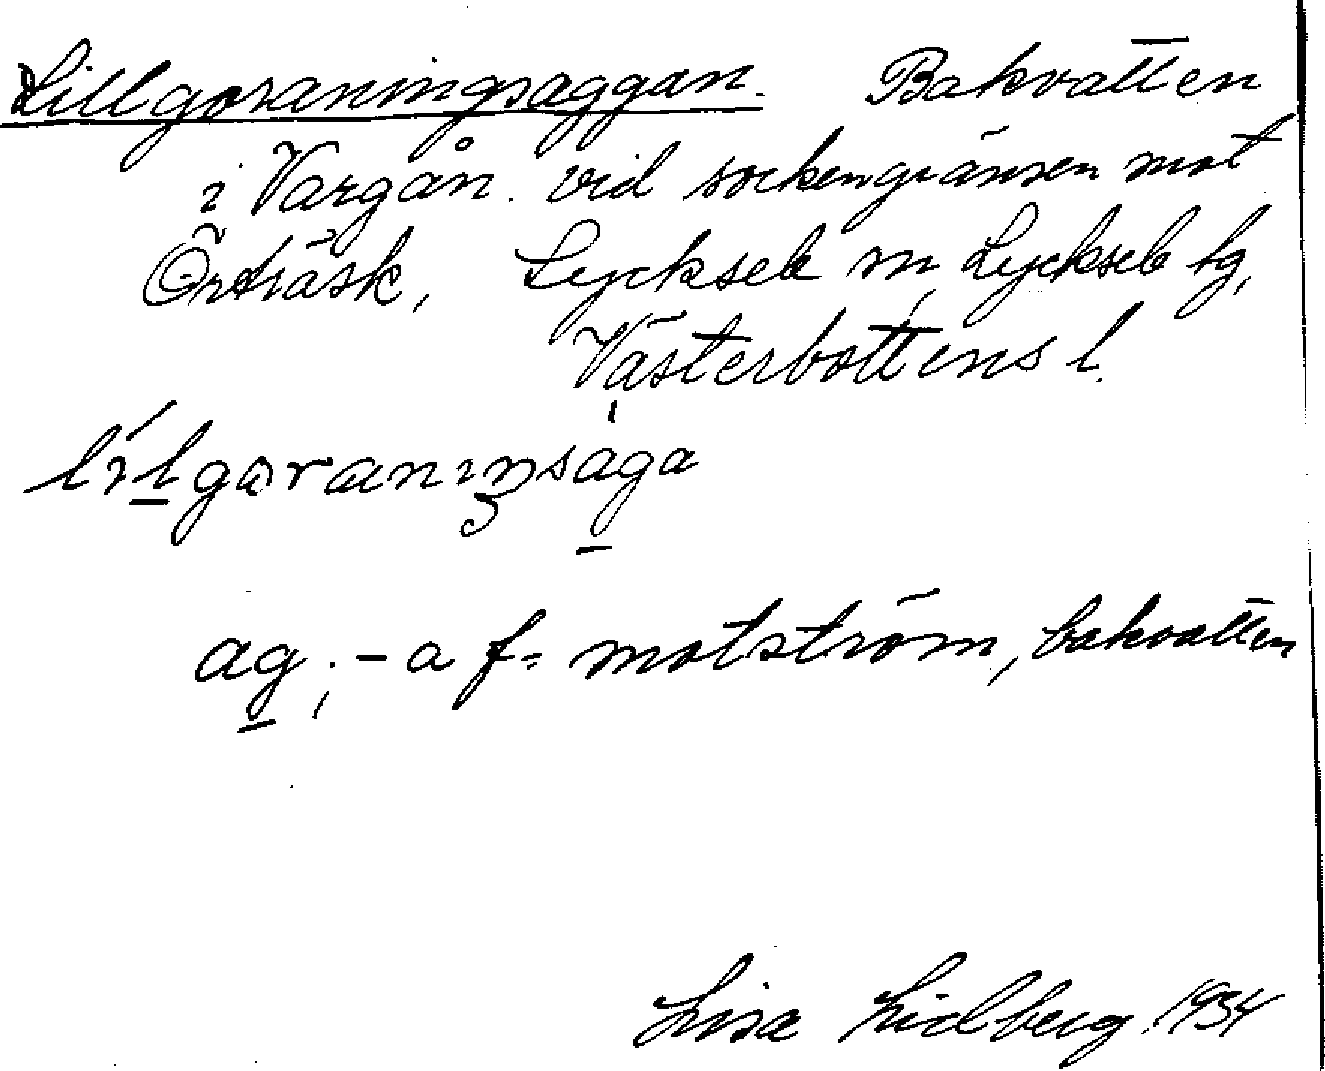 Lillgoraningsaggan. Bakvatten
i Vargån. vid sockengränsen mot
Örträsk, Lycksele sn, Lycksele tg,
Västerbottens l.
lilgoraniŋsaga
ag, -a f= motström, bakvatten
Lisa Lidberg 1934